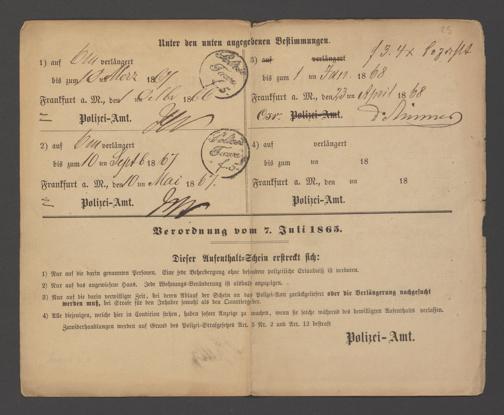 Unter den unten angegebenen Bestimmungen.
1) auf 6 m verlängert
bis zum 10 ten März 1867
Frankfurt a. M., den 1 1866
Polizei-Amt.
3) auf verlängert
bis zum 1 ten Juni 1868
Frankfurt a. M., den 23 ten April 1868
Polizei-Amt.
2) auf 6 m verlängert
bis zum 10 ten Septb 1867
Frankfurt a. M., den 10 ten Mai 1867.
Polizei-Amt.
4) auf verlängert
bis zum ten 18
Frankfurt a. M., den ten 18
Polizei-Amt.
Verordnung vom 7. Juli 1865.
Dieser Aufenthalt-Schein erstreckt sich:
1) Nur auf die darin genannten Personen. Eine jede Beherbergung ohne besondere polizeiliche Erlaubniß ist verboten.
2) Nur auf das angewiesene Haus. Jede Wohnungs-Veränderung ist alsbald anzuzeigen.
3) Nur auf die darin verwilligte Zeit, bei deren Ablauf der Schein an das Polizei-Amt zurückgeliefert oder die Verlängerung nachgesucht
werden muß, bei Strafe für den Inhaber sowohl als den Quartiergeber.
4) Alle diejenigen, welche hier in Condition stehen, haben sofort Anzeige zu machen, wenn sie solche während des bewilligten Aufenthalts verlassen.
Zuwiderhandlungen werden auf Grund des Polizei-Strafgesetzes Art. 5 Nr. 2 und Art. 12 bestraft
Polizei-Amt.